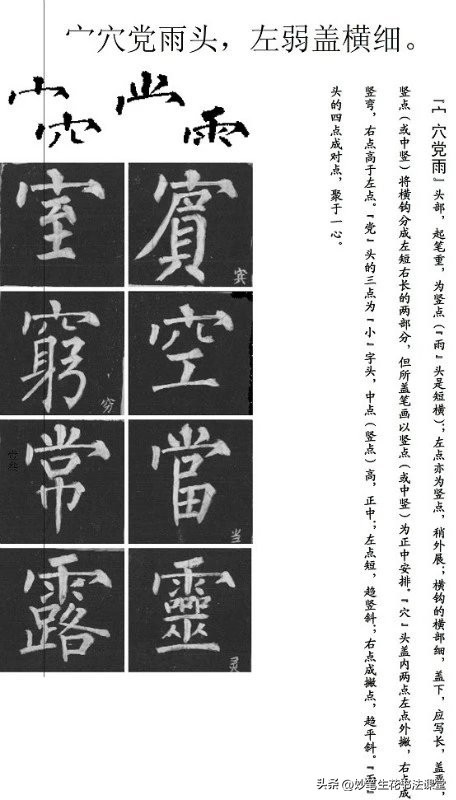 宀穴党雨头，左弱盖横细。
『宀 穴党雨』头部，起笔重，为竖点（『雨』头是短横）；左点亦为竖点，稍外展；横钩的横部细，盖下，应写长，盖严，
竖点（或中竖）将横钩分成左短右长的两部分，但所盖笔画以竖点（或中竖）为正中安排。『穴』头盖内两点左点外撇，右点成
竖弯，右点高于左点。『党』头的三点为『小』字头，中点（竖点）高，正中；左点短，趋竖斜；右点成撇点，趋平斜。『雨』
头的四点成对点，聚于一心。
宀 穴 雨
室 賓 宾
窮 穷 空
常 當 当
露 靈 灵
头条 @妙笔生花书法课堂